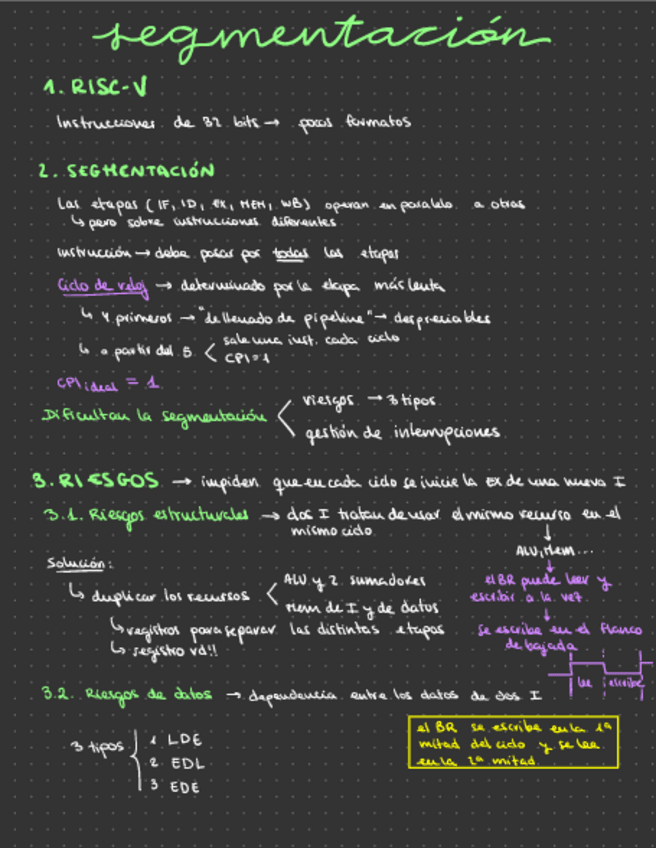 segmentación
1. RISC-V
Instrucciones de 32 bits → pocos formatos
2. SEGMENTACIÓN
Las etapas (IF, ID, EX, MEM, WB) operan en paralelo a otras
↳ pero sobre instrucciones diferentes
instrucción → debe pasar por todas las etapas
Ciclo de reloj → determinado por la etapa más lenta
↳ 4 primeros → "de llenado de pipeline" → despreciables
↳ a partir del 5 < sale una inst. cada ciclo
CPI=1
CPI ideal = 1
Dificultan la segmentación < riesgos → 3 tipos
gestión de interrupciones
3. RIESGOS → impiden que en cada ciclo se inicie la EX de una nueva I
3.1. Riesgos estructurales → dos I tratan de usar el mismo recurso en el
mismo ciclo
↓
ALU, Mem...
Solución:
↳ duplicar los recursos < ALU y 2 sumadores
mem de I y de datos
↳ registros para separar las distintas etapas
↳ registro vd!!
↓
el BR puede leer y
escribir a la vez
↓
se escribe en el flanco
de bajada
lee escribe
3.2. Riesgos de datos → dependencia entre los datos de dos I
3 tipos
1 LDE
2 EDL
3 EDE
el BR se escribe en la 1ª
mitad del ciclo y se lee
en la 2ª mitad